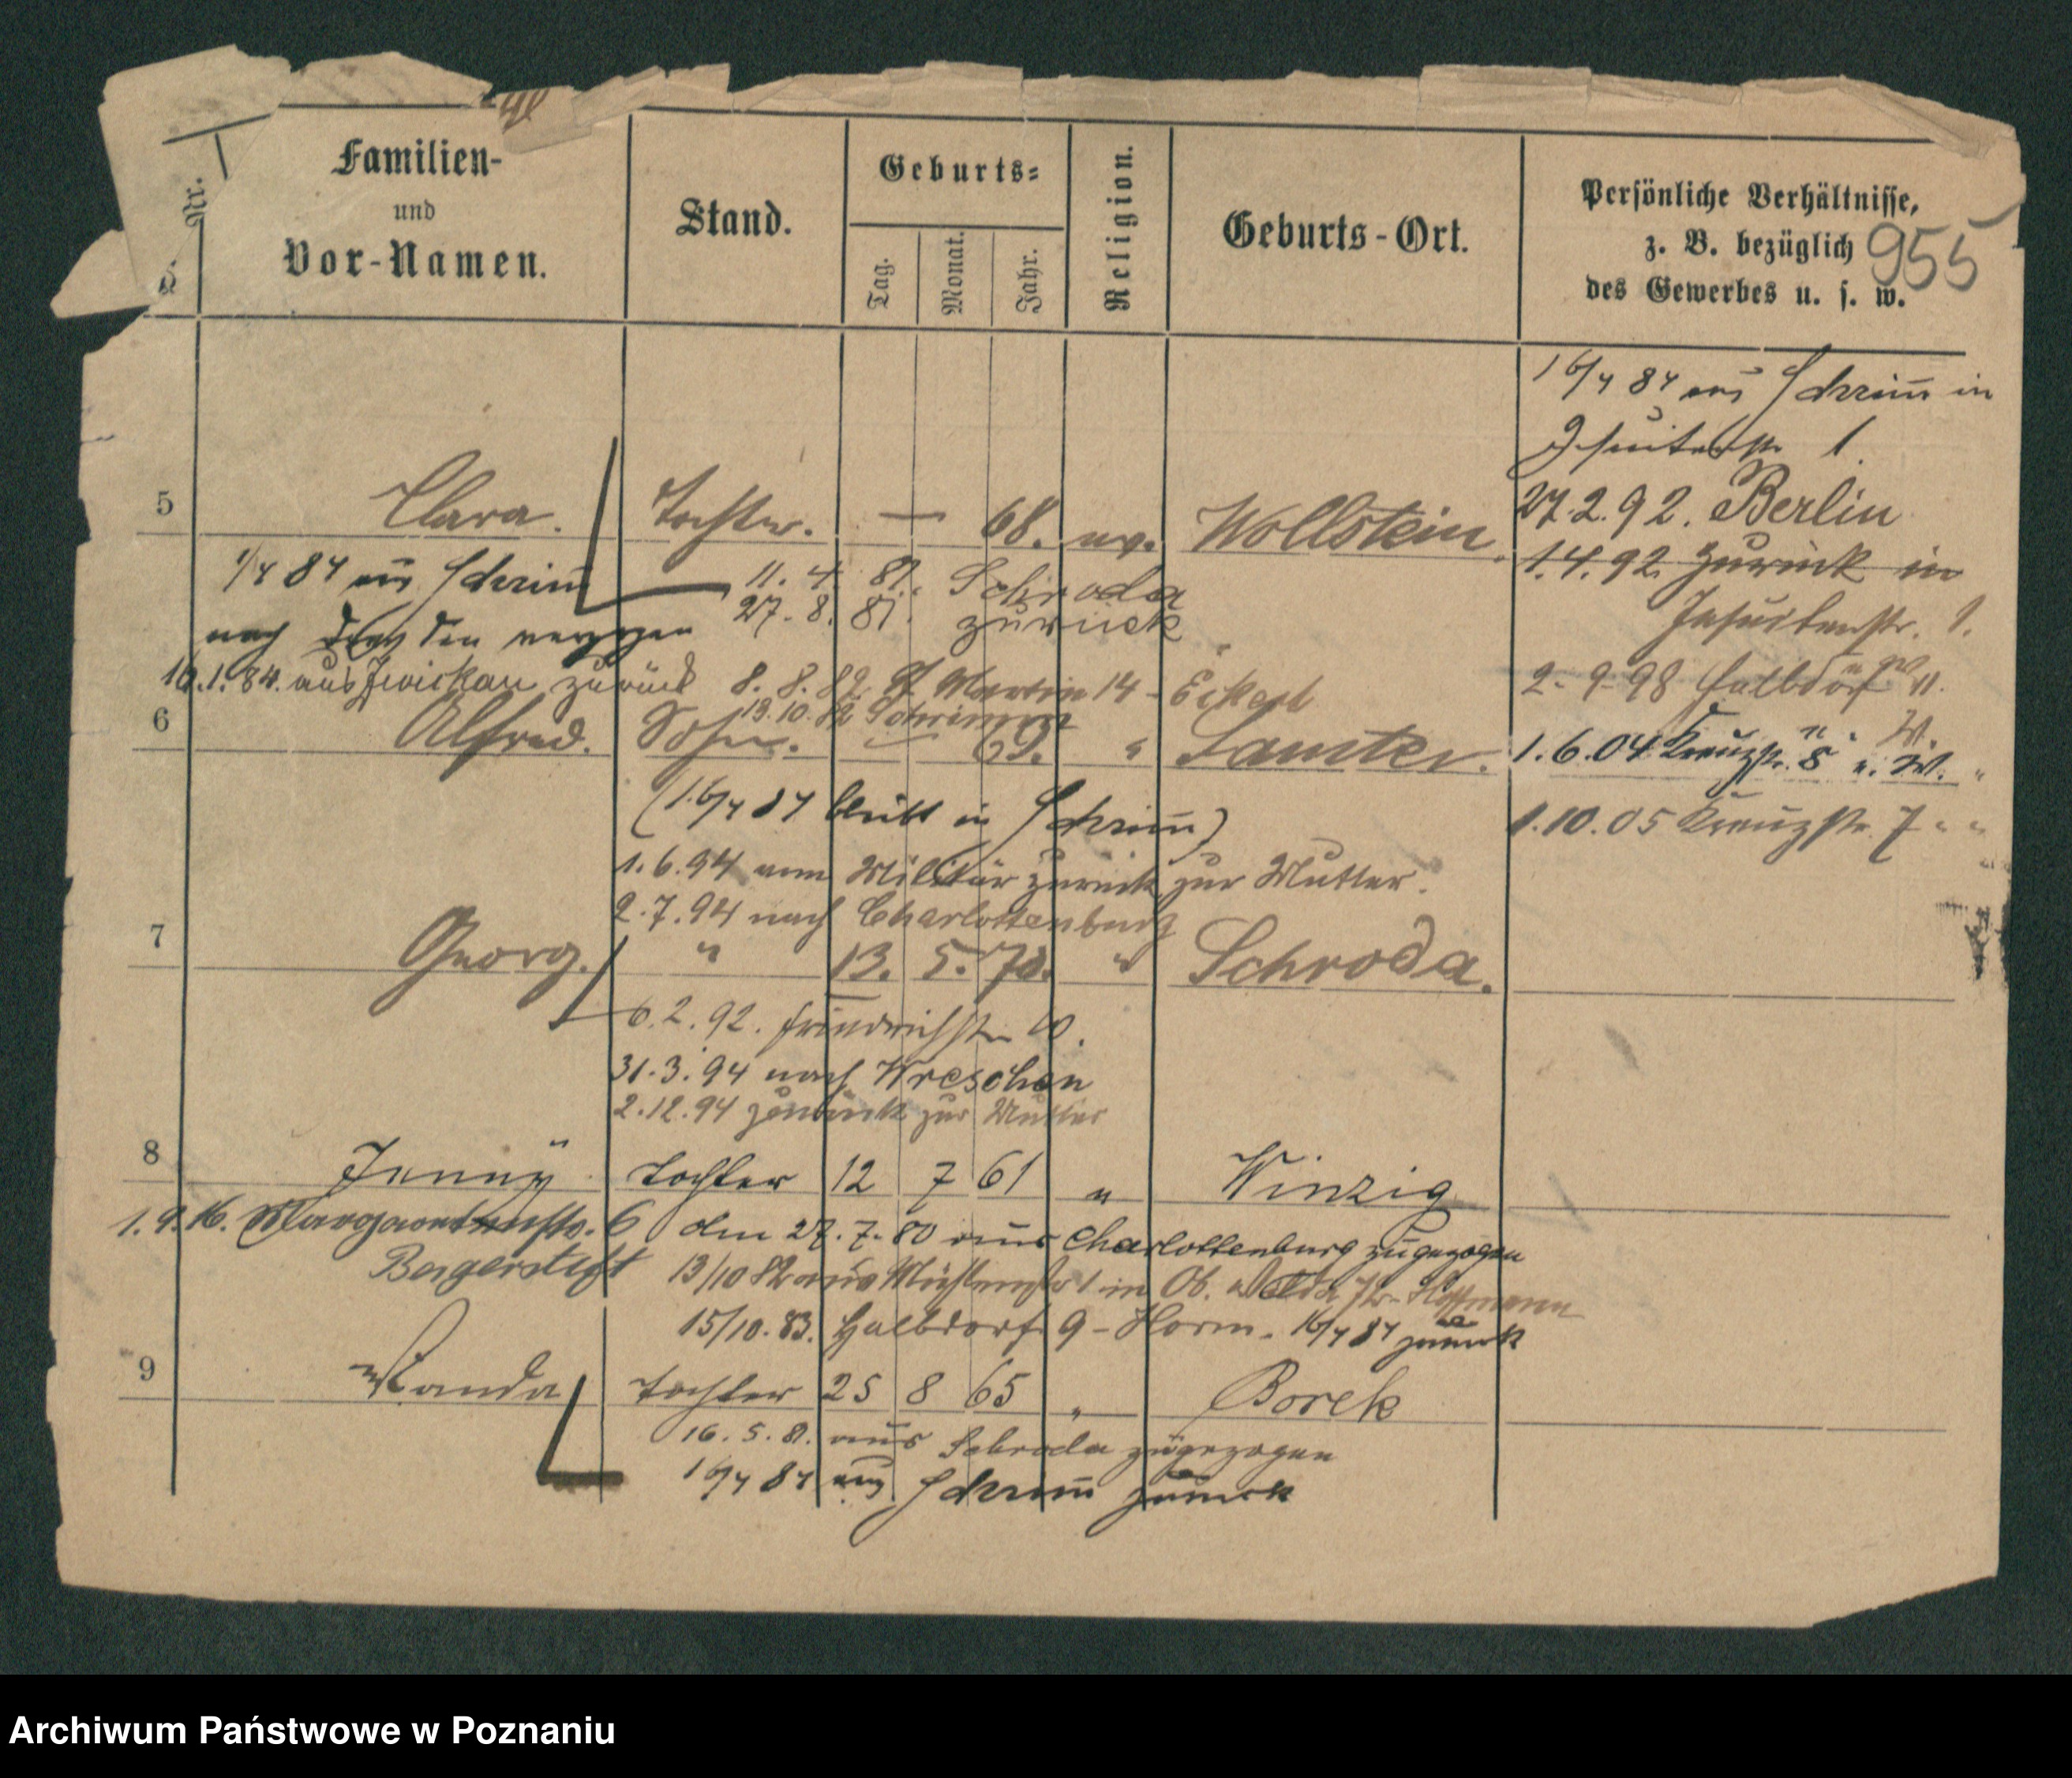 Nr.
Familien-
und
Vor-Namen.
Stand.
Geburts-
Tag.
Monat.
Jahr.
Religion.
Geburts-Ort.
Persönliche Verhältnisse,
z. B. bezüglich
des Gewerbes u. s. w.
955
16/4 84 aus Schrimm in
Jesuitenstr 1.
5 Clara. Tochter. — 68. ev. Wollstein.
27.2.92. Berlin
1.4.92. zurück in
Jesuitenstr. 1.
1/4 84 aus Schrimm
11. 4. 81. Schroda
27. 8. 81. zurück
nach Dresden verzogen
10.1.84. aus Zwickau zurück
8. 8. 82. St Martin 14 - Eckert
13.10.82 Schrimm
2-9-98 Halbdorf 11.
6 Alfred. Sohn. — 69. " Samter.
1.6.04 Kreuzstr. 8 u. W.
(16/4 84 bleibt in Schrimm)
1.10.05 Kreuzstr. 7 " "
1.6.94 vom Militär zurück zur Mutter.
2.7.94 nach Charlottenburg
7 Georg. " 13. 5. 73. " Schroda.
6.2.92. Friedrichstr 10.
31.3.94 nach Wreschen
2.12.94 zurück zur Mutter
8 Jenny Tochter 12 7 61 " Winzig
1.9.16. Margaretenstr. 6
den 27.7.80 aus Charlottenburg zugezogen
Bergerstift
13/10 82 aus Mühlenstr 1 in Ob. Hoffmann
15/10.83. Halbdorf 9 - Horn. 16/4 84 zurück
9 Wanda Tochter 25 8 65 " Borek
16.5.81. aus Schroda zugezogen
16/4 84 aus Schrimm zurück
Archiwum Państwowe w Poznaniu